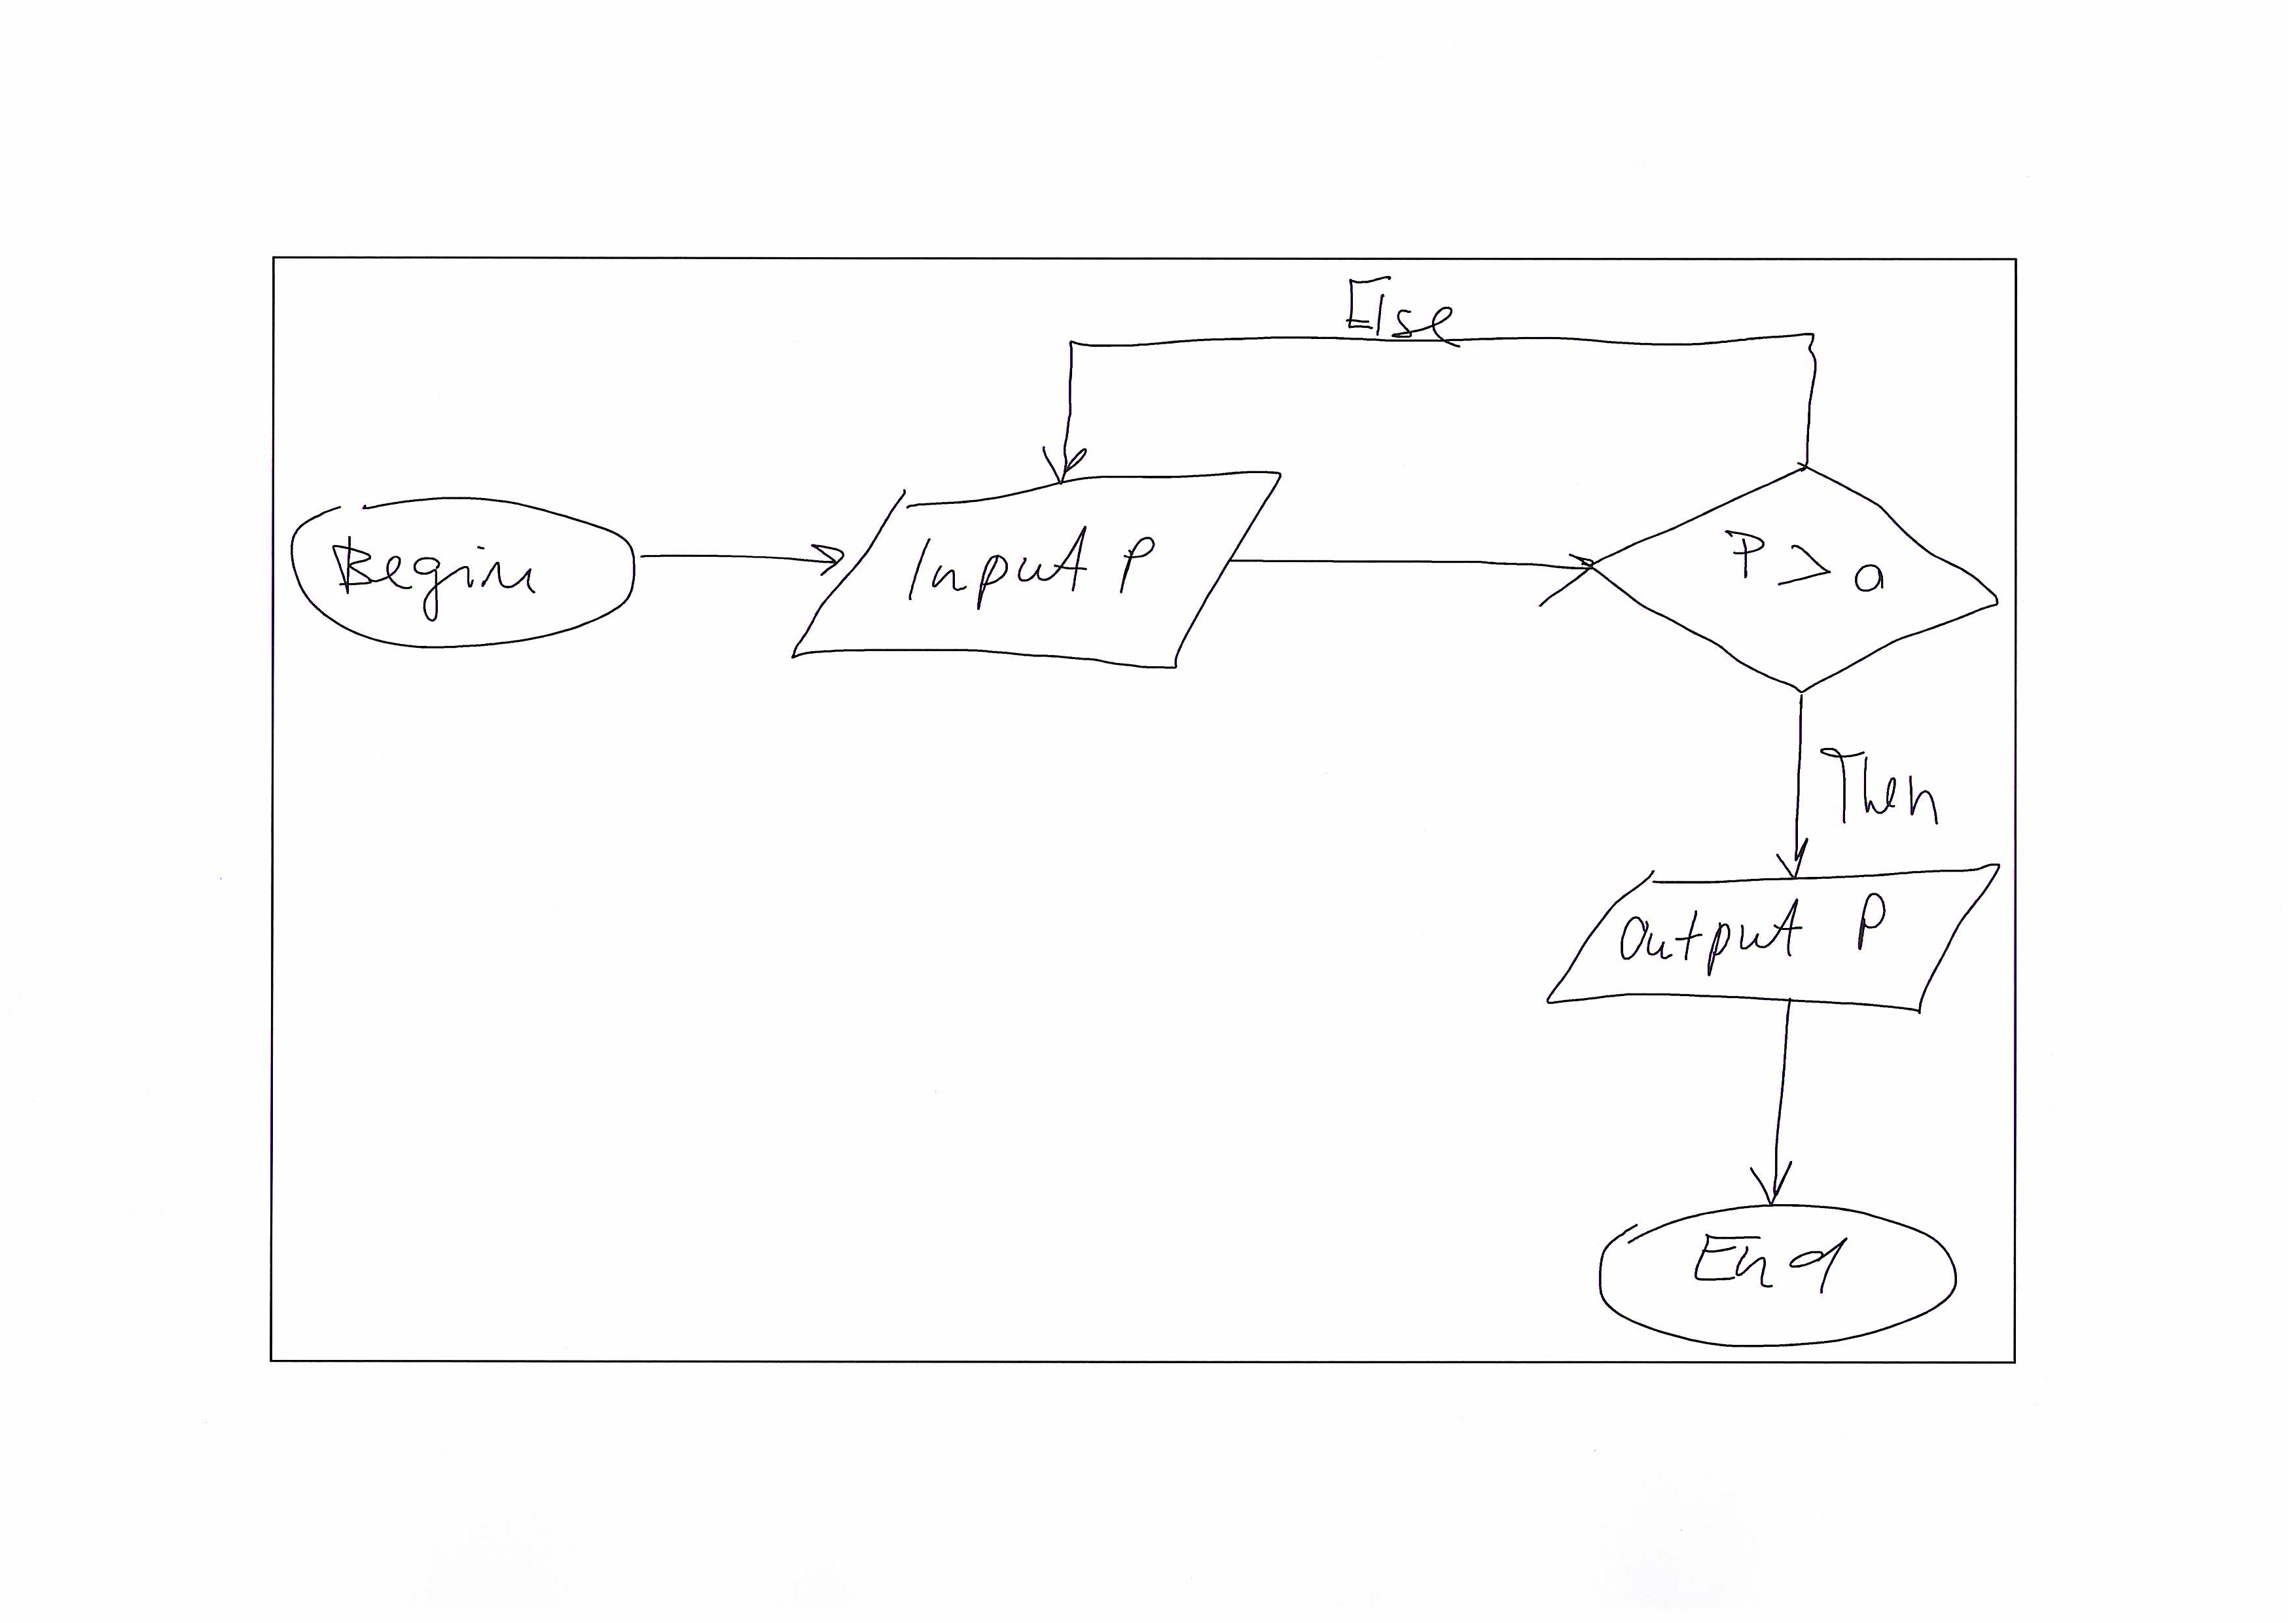 Else
Begin
Input P
P > a
Then
Output P
End